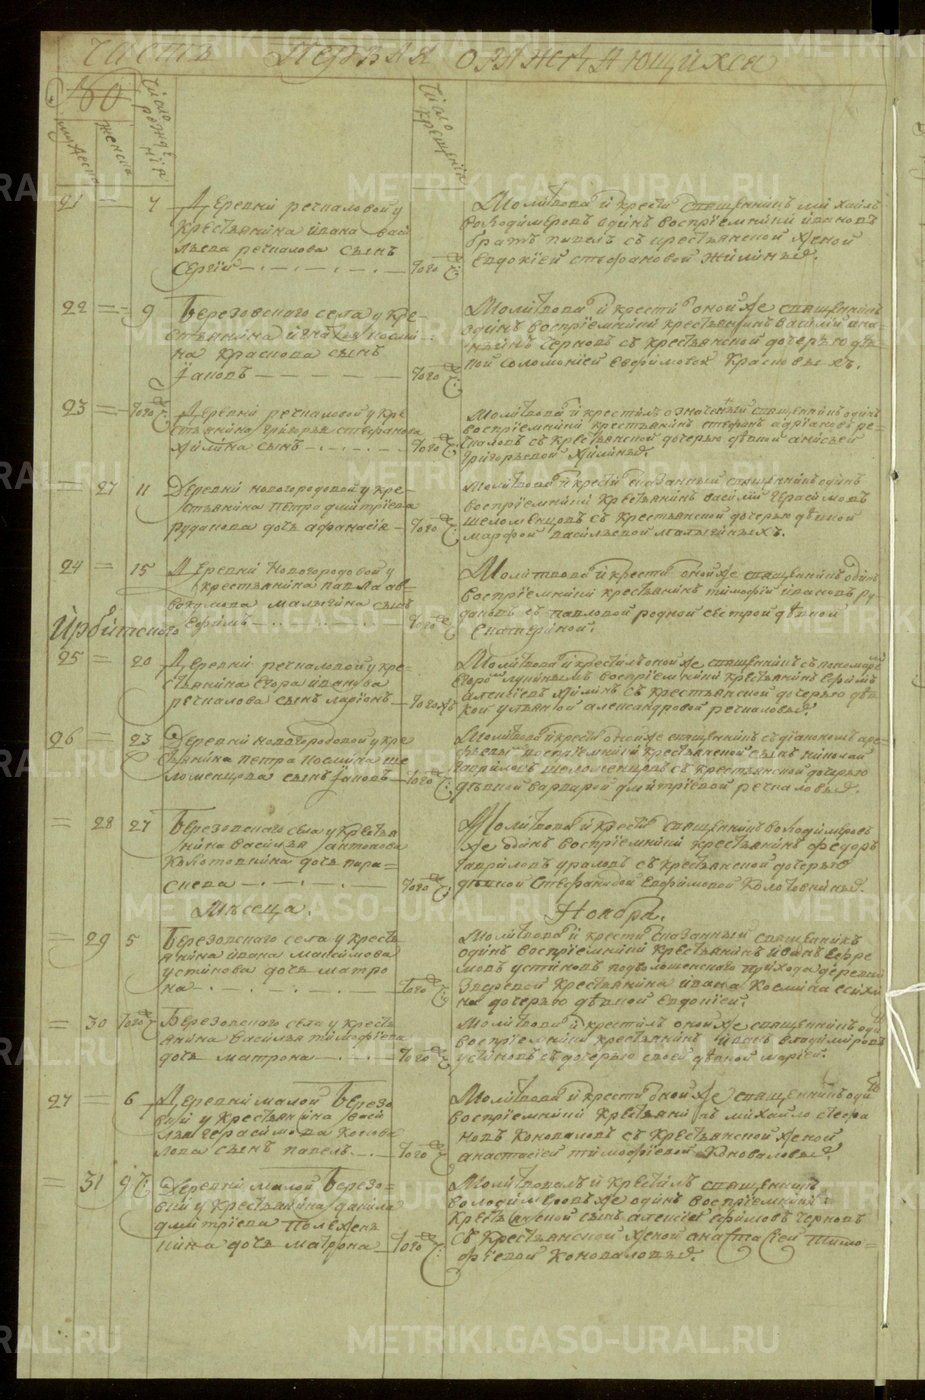 Часть Первая о раждающихся
180
мужеска
женска
Число рожденія
Число крещенія
21 — 7 Деревни речкаловой у
крестьянина ивана васи
льева речкалова сынъ
Сергіи — того ж ч:
Молитвова и крести священникъ михаилъ
володимеровъ одинъ воспріемники ивановъ
братъ павелъ съ крестьянской женой
Евдокіей стефановой жилиных.
22 — 9 Березовскаго села у кре-
стьянина козми-
на краснова сынъ
Іаковъ — того ж ч:
Молитвова и крести оной же священникъ
одинъ воспріемники крестьянинъ васили ана-
ньинъ черновъ съ крестьянской дочерью дѣв-
кой соломоніей евфимовой Красновых.
23 — того ж ч: Деревни речкаловой у кре
стьянина григорья стефанова
жилина сынъ — того ж ч:
Молитвова и крестилъ означеный священникъ одинъ
воспріемники крестьянинъ стефанъ адріановъ ре-
чкаловъ съ крестьянской дочерью дѣвкой анисьей
григорьевой жилиных.
— 27 11 Деревни новогородовой у кре-
стьянина петра дмитріева
рудакова дочь афанасія — того ж ч:
Молитвова и крести сказанный священникъ одинъ
воспріемники крестьянинъ васили герасимовъ
шеломенцовъ съ крестьянской дочерью дѣвкой
марфой васильевой малыгиных.
24 — 15 Деревни Новогородовой у
крестьянина павла ав
вакумова малыгина сынъ
Ефимъ — того ж ч:
Молитвова и крести оной же священникъ одинъ
воспріемники крестьянинъ тимофіи ивановъ ру
даковъ съ павловой родной сестрой дѣвкой
Екатериной.
Ирбитскаго
25 — 20 Деревни речкаловой у кре-
стьянина егора иванова
речкалова сынъ ларіонъ — того ж ч
Молитвова и крестилъ оной же священникъ съ пономаремъ
воспріемники крестьянинъ ефимъ
алексіевъ жилинъ съ крестьянской дочерью дѣв
кой ульяной александровой речкаловых.
26 — 23 Деревни новогородовой у кре
стьянина петра козмина ше
ломенцова сынъ Іаковъ — того ж ч:
Молитвова и крести оной же священникъ съ діакономъ
воспріемники крестьянской сынъ николай
гавриловъ шеломенцовъ съ крестьянской дочерью
дѣвкой варварой дмитріевой речкаловых.
— 28 27 Березовскаго села у крестья
нина василья антонова
Колотовкина дочь пара-
скева — того ж ч:
Молитвова и крести священникъ володимеровъ
же одинъ воспріемники крестьянинъ федоръ
гавриловъ ураловъ съ крестьянской дочерью
дѣвкой Стефанидой Евфимовой Колотовкиных.
Мѣсяца. Ноября.
— 29 5 Березовскаго села у кресть
янина ивана максимова
устинова дочь матро
на — того ж ч:
Молитвова и крести сказанный священникъ
одинъ воспріемники крестьянинъ иванъ ефре
мовъ устиновъ подволошенскаго прихода деревни
Зверевой крестьянина ивана Козмина
на дочерью дѣвкой Евдокіеи.
— 30 того ж ч: Березовскаго села у кресть
янина василья тимофіева
дочь матрона — того ж ч:
Молитвова и крестилъ оной же священникъ одинъ
воспріемники крестьянинъ иванъ владимировъ
устиновъ съ дочерью своей дѣвкой маріеи.
27 — 6 Деревни малой Березо
вки у крестьянина васи
лья герасимова конова
лова сынъ павелъ — того ж ч:
Молитвова и крести оной же священникъ одинъ
воспріемники крестьянинъ михайло стефа
новъ Коноваловъ съ крестьянской женой
анастасіей тимофіевой Коноваловых.
— 31 9 ч: Деревни малой Березо-
вки у крестьянина данила
дмитріева Полежен
кина дочь матрона — того ж ч:
Молитвовалъ и крестилъ священникъ
володимеровъ же одинъ воспріемники
крестьянской сынъ алексіи ефимовъ черновъ
съ крестьянской женой анастасіей тимо-
фіевой Коноваловых.